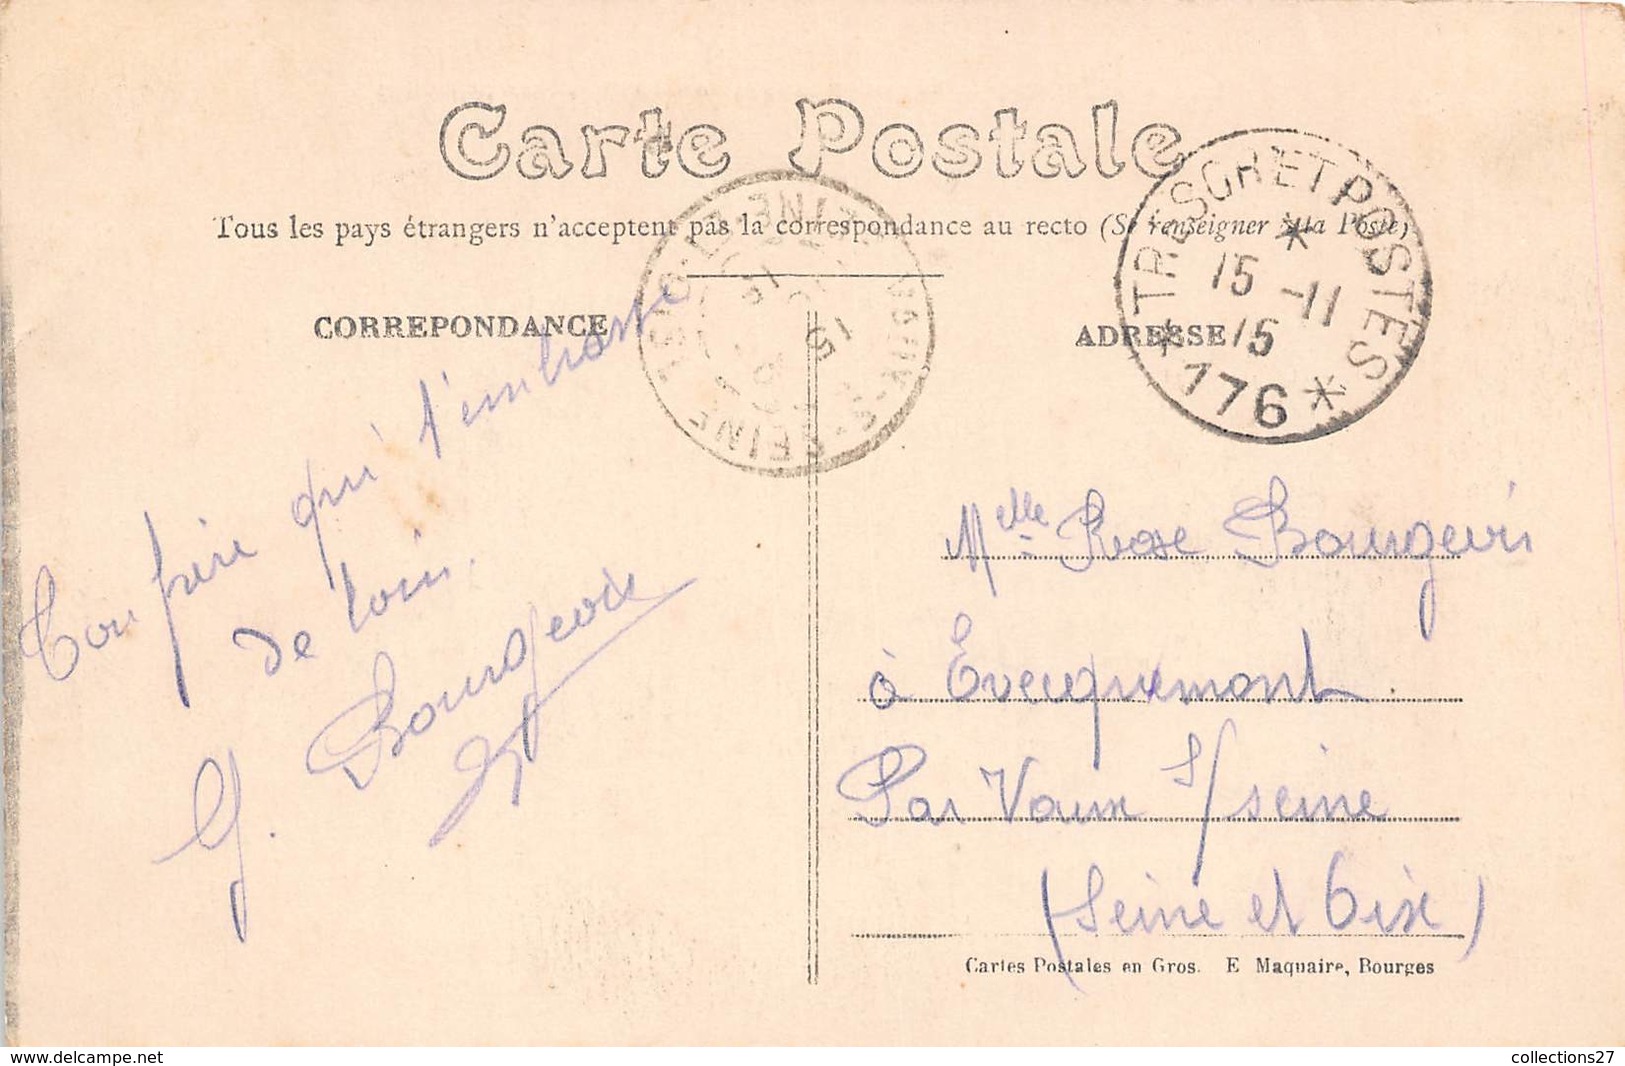 Carte Postale
Tous les pays étrangers n'acceptent pas la correspondance au recto (Se renseigner à la Poste)
CORREPONDANCE
ADRESSE
* TRESOR ET POSTES *
*
15 -11
15
176
SEINE-ET-OISE
15
Ton frère qui t'embrasse
de loin.
G. Bourgeois
Melle Rose Bourgeois
à Evecquemont.
Par Vaux s/seine
(Seine et Oise)
Cartes Postales en Gros. E Maquaire, Bourges
www.delcampe.net
collections27